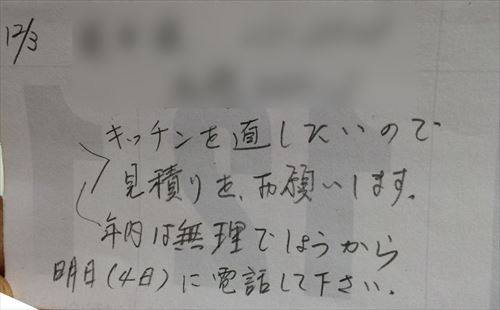 12/3
キッチンを直したいので
見積りを、お願いします。
年内は無理でしょうから
明日(4日)に電話して下さい。